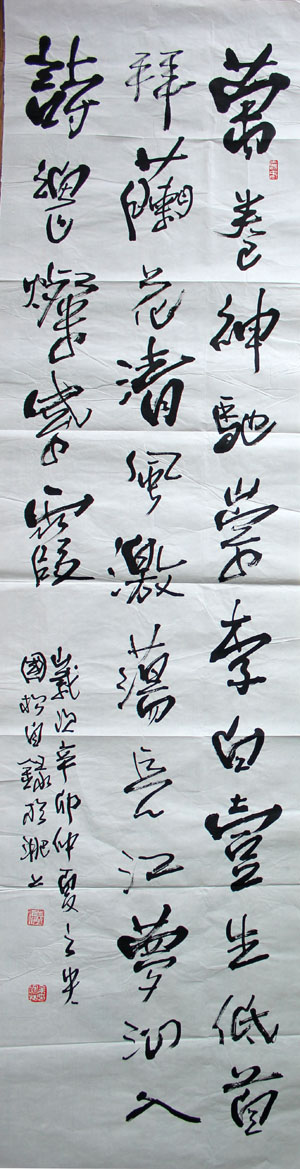 萬卷神馳崇李白壹生低首
拜蘭花清風激蕩長江夢入
詩燦紫霞
歲次辛卯仲夏之
國松自錄於上